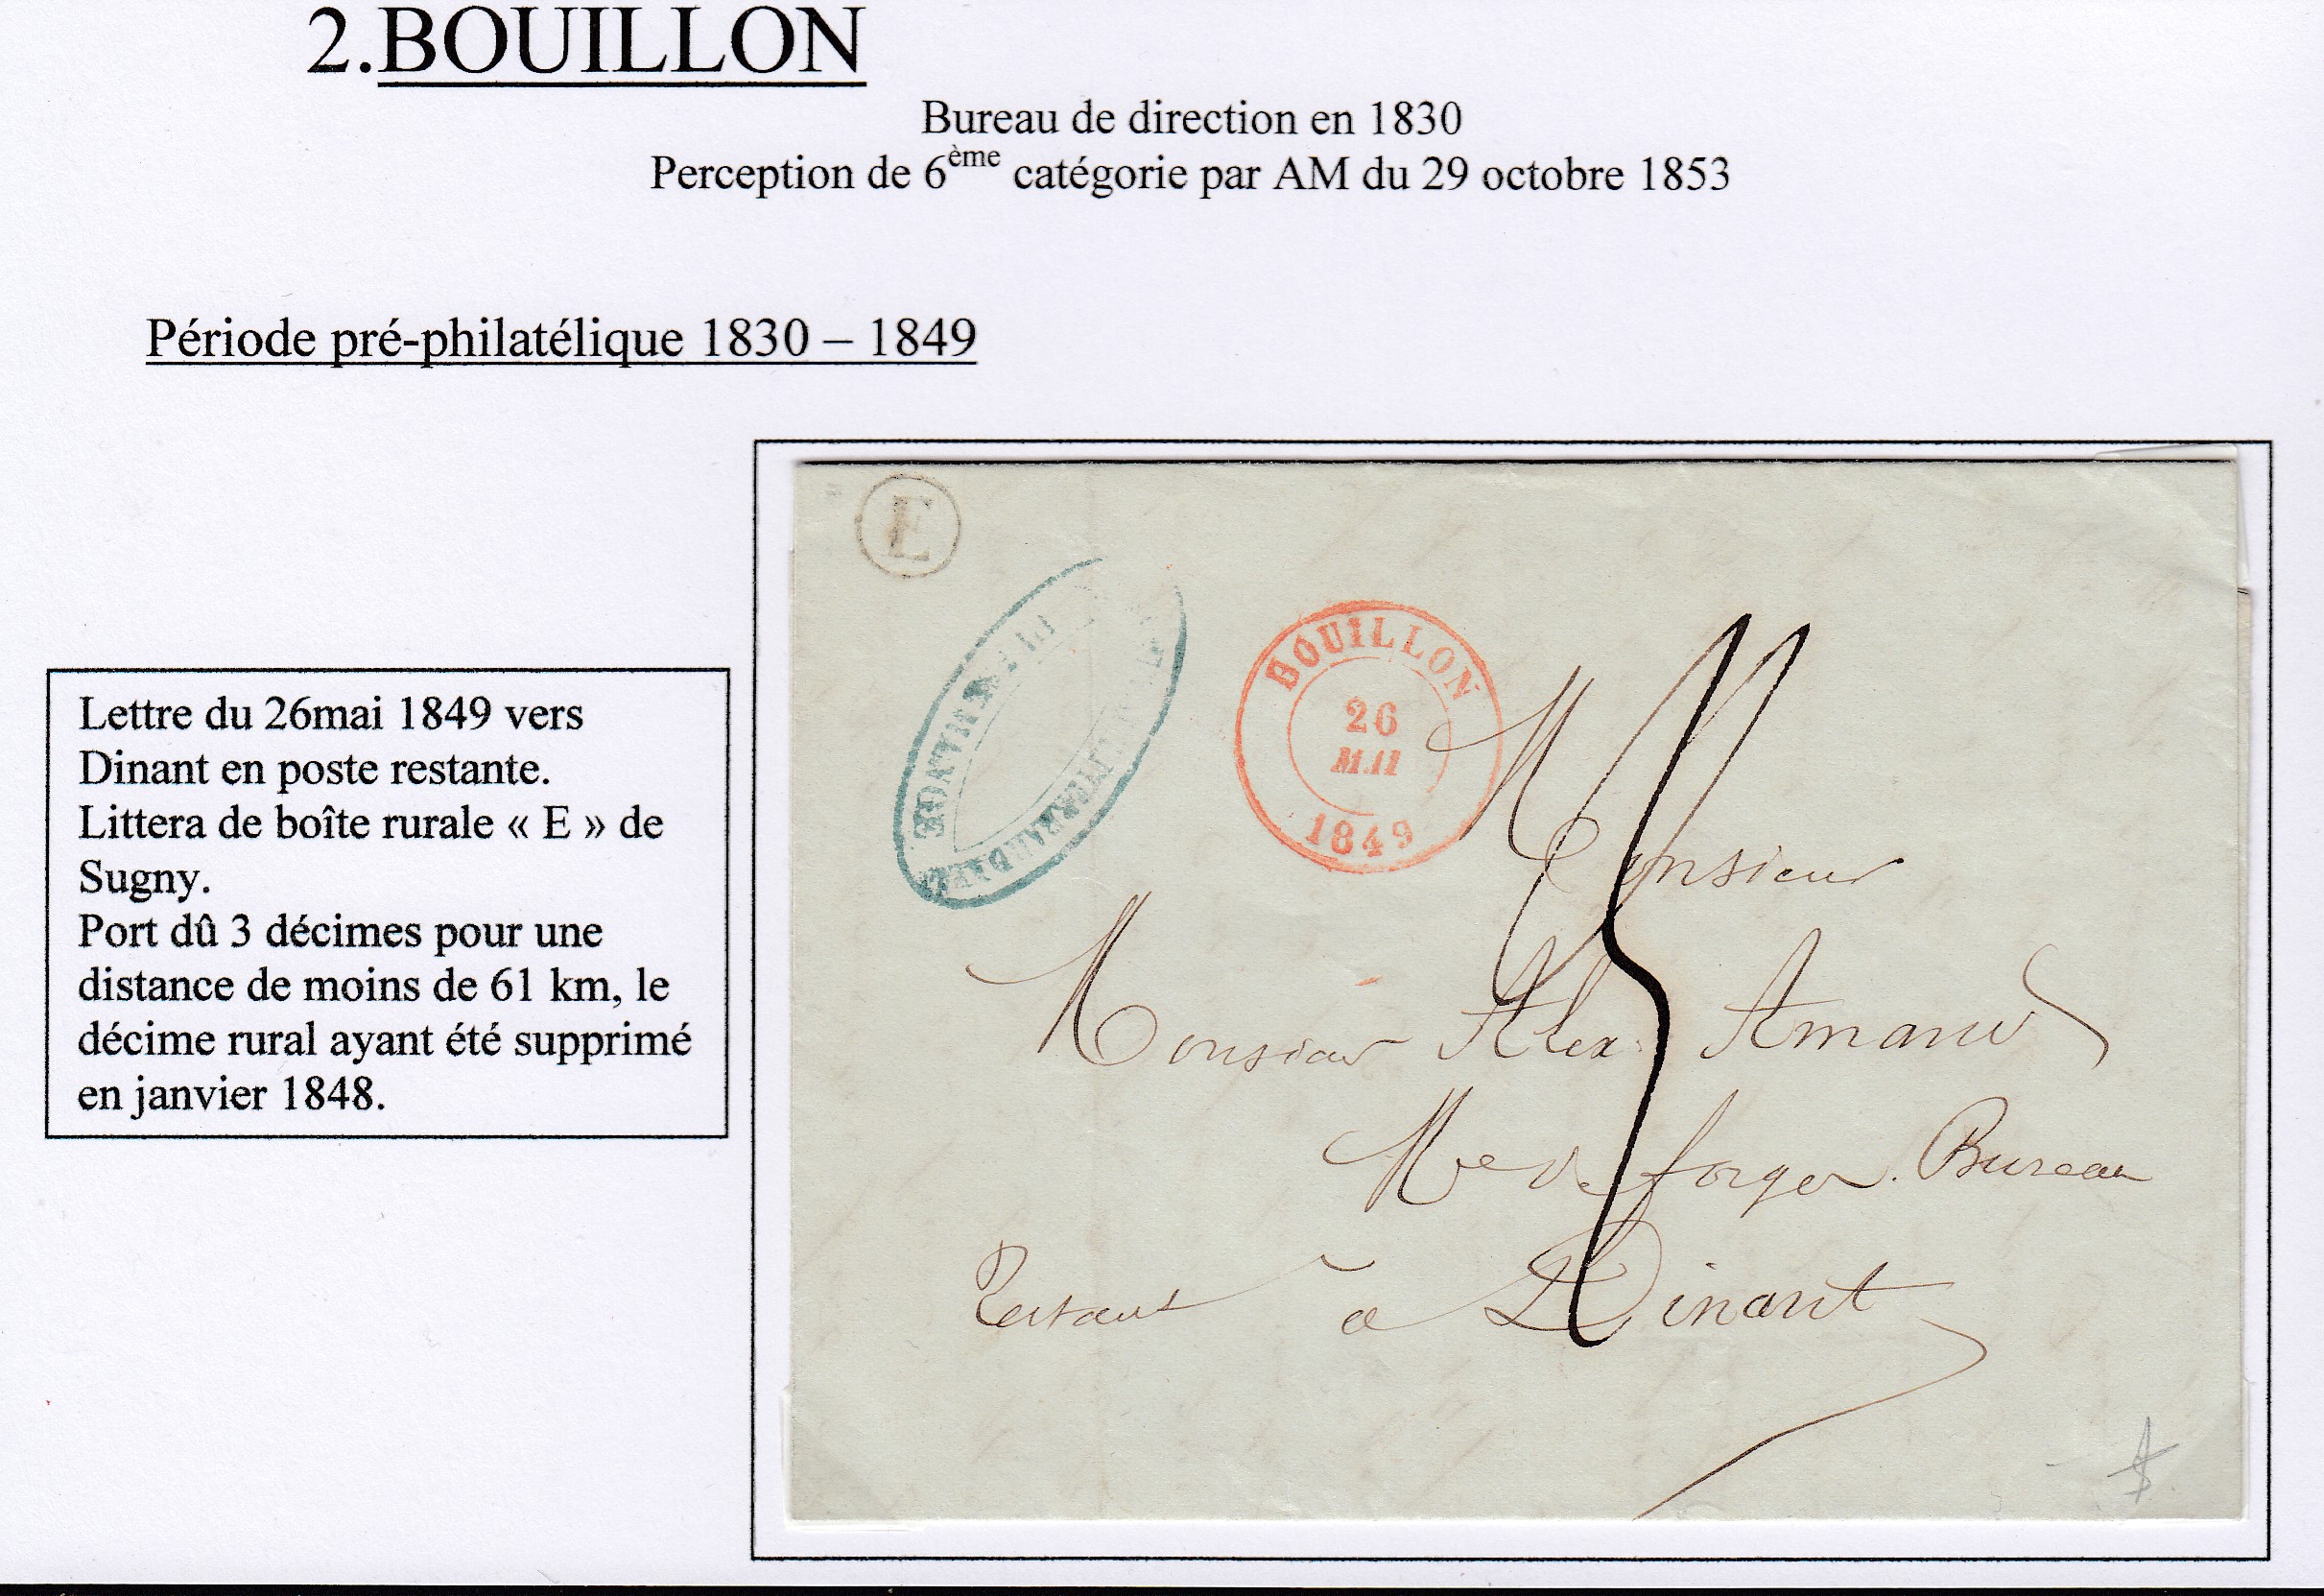 2.BOUILLON
Bureau de direction en 1830
Perception de 6ème catégorie par AM du 29 octobre 1853
Période pré-philatélique 1830 – 1849
Lettre du 26mai 1849 vers
Dinant en poste restante.
Littera de boîte rurale « E » de
Sugny.
Port dû 3 décimes pour une
distance de moins de 61 km, le
décime rural ayant été supprimé
en janvier 1848.
E
BOUILLON
26
MAI
1849
Monsieur
Monsieur Alex. Amand
forges. Bureau
Restant à Dinant